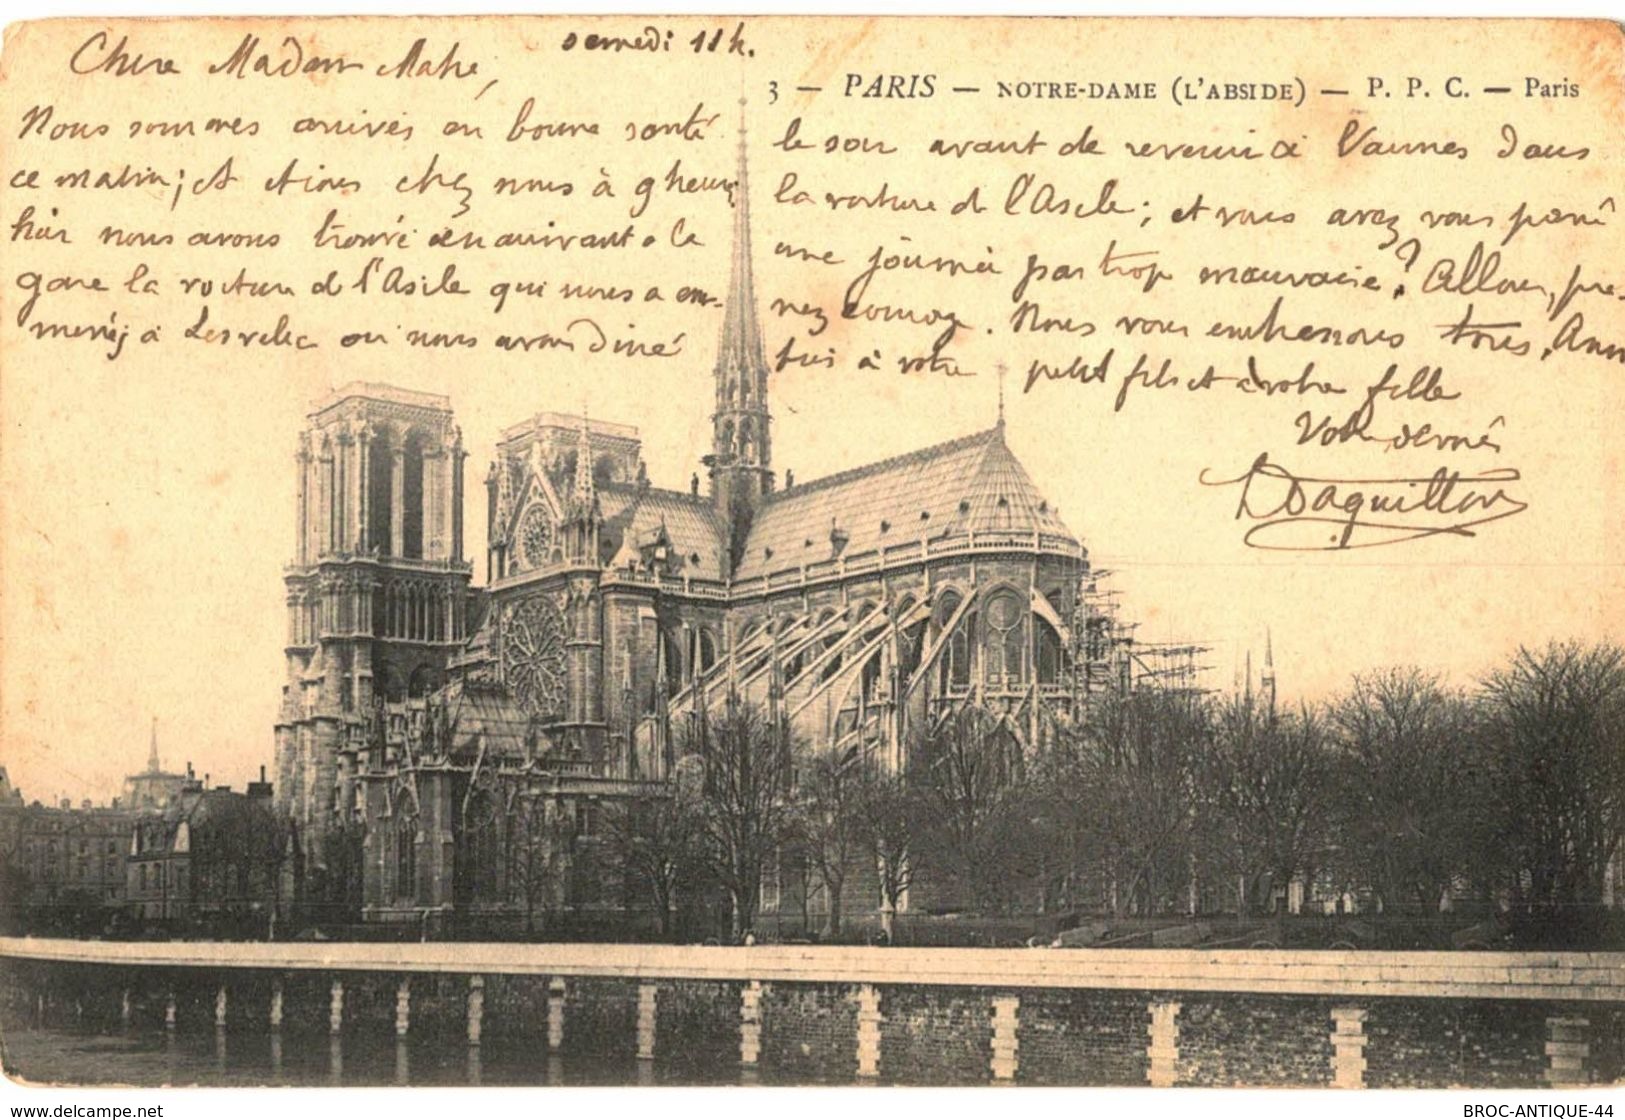 samedi 11h.
Chère Madame Mahé,
3 — PARIS — NOTRE-DAME (L'ABSIDE) — P. P. C. — Paris
Nous sommes arrivés en bonne santé
ce matin; et étions chez nous à 9 heures
hier nous avons trouvé en arrivant à la
gare la voiture de l'Asile qui nous a em-
menés à Lesvelec où nous avons diné
le soir avant de revenir à Vannes dans
la voiture de l'Asile; et vous avez vous passé
une journée pas trop mauvaise? Allons, pre-
nez courage. Nous vous embrassons tous.
à votre petit fils et à votre fille
Votre
Daguillon
www.delcampe.net
BROC-ANTIQUE-44